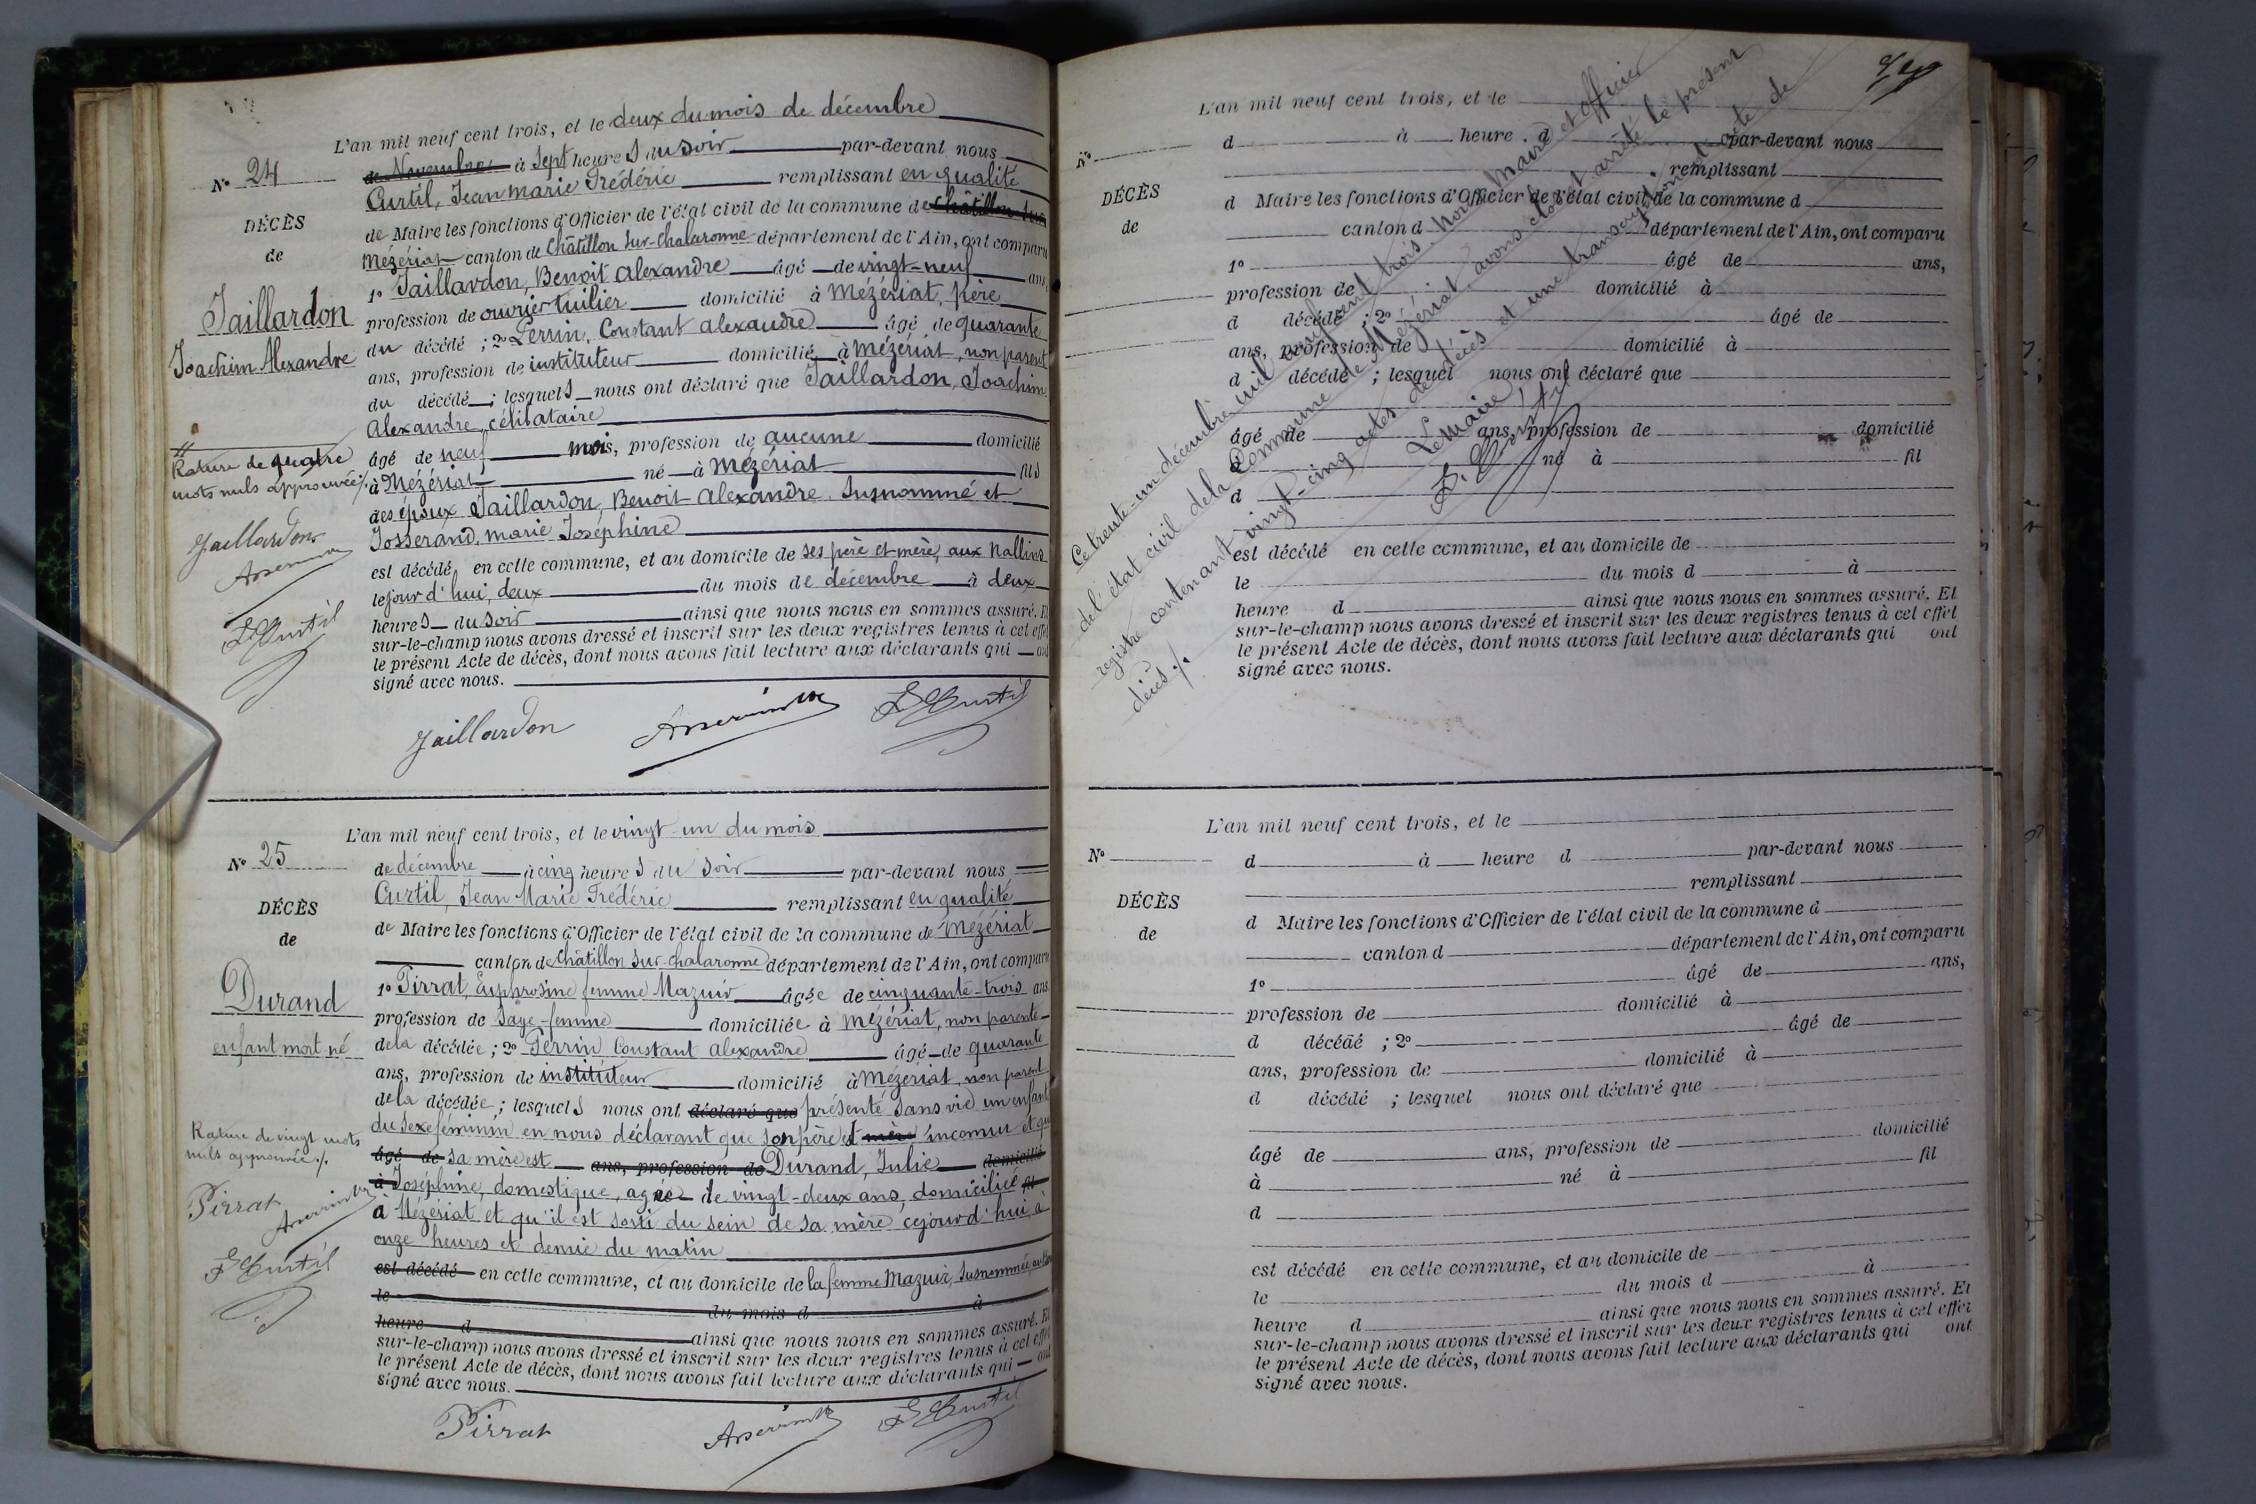 L'an mil neuf cent trois, et le deux du mois de décembre
de Novembre à Sept heures du soir par-devant nous
Curtil, Jean Marie Frédéric remplissant en qualité
de Maire les fonctions d'Officier de l'état civil de la commune de Châtillon-sur
Mézériat canton de Châtillon sur-Chalaronne département de l'Ain, ont comparu
1° Jaillardon, Benoit Alexandre âgé de vingt-neuf ans,
profession de ouvrier tuilier domicilié à Mézériat, père
du décédé ; 2° Perrin, Constant Alexandre âgé de quarante
ans, profession de instituteur domicilié à Mézériat, non parent
du décédé ; lesquels nous ont déclaré que Jaillardon, Joachim
Alexandre, célibataire
âgé de neuf mois, profession de aucune domicilié
à Mézériat né à Mézériat fils
des époux Jaillardon, Benoit-Alexandre Susnommé et
Josserand, Marie Joséphine
est décédé en cette commune, et au domicile de ses père et mère, aux
le jour d'hui, deux du mois de décembre à deux
heures du soir ainsi que nous nous en sommes assuré. Et
sur-le-champ nous avons dressé et inscrit sur les deux registres tenus à cet effet
le présent Acte de décès, dont nous avons fait lecture aux déclarants qui ont
signé avec nous.
Jaillardon
N° 24
DÉCÈS
de
Jaillardon
Joachim Alexandre
Rature de quatre
mots nuls approuvée ./.
Jaillardon
L'an mil neuf cent trois, et le vingt un du mois
de décembre à cinq heures du soir par-devant nous
Curtil, Jean Marie Frédéric remplissant en qualité
de Maire les fonctions d'Officier de l'état civil de la commune de Mézériat
canton de Châtillon sur-Chalaronne département de l'Ain, ont comparu
1° Pirrat, Euphrosine femme Mazuir âgée de cinquante-trois ans
profession de Sage-femme domiciliée à Mézériat, non parente
de la décédée ; 2° Perrin, Constant Alexandre âgé de quarante
ans, profession de instituteur domicilié à Mézériat, non parent
de la décédée ; lesquels nous ont déclaré que présenté sans vie un enfant
du sexe féminin en nous déclarant que son père est mère inconnu et que
âgé de sa mère est ans, profession de Durand, Julie domicilié
à Joséphine, domestique, agée de vingt-deux ans, domiciliée fil
à Mézériat et qu'il est sorti du sein de sa mère cejourd'hui, à
onze heures et demie du matin
est décédé en cette commune, et au domicile de la femme Mazuir, Susnommée,
le du mois d à
heure d ainsi que nous nous en sommes assuré. Et
sur-le-champ nous avons dressé et inscrit sur les deux registres tenus à cet effet
le présent Acte de décès, dont nous avons fait lecture aux déclarants qui ont
signé avec nous.
Pirrat
N° 25
DÉCÈS
de
Durand
enfant mort né
Rature de vingt mots
nuls approuvée ./.
Pirrat
L'an mil neuf cent trois, et le
d à heure d par-devant nous
remplissant
d Maire les fonctions d'Officier de l'état civil de la commune d
canton d département de l'Ain, ont comparu
1° âgé de ans,
profession de domicilié à
d décédé ; 2° âgé de
ans, profession de domicilié à
d décédé ; lesquel nous ont déclaré que
âgé de ans, profession de domicilié
à né à fil
d
est décédé en cette commune, et au domicile de
le du mois d à
heure d ainsi que nous nous en sommes assuré. Et
sur-le-champ nous avons dressé et inscrit sur les deux registres tenus à cet effet
le présent Acte de décès, dont nous avons fait lecture aux déclarants qui ont
signé avec nous.
N°
DÉCÈS
de
Ce trente-un décembre mil neuf cent trois, nous Maire et officier
de l'état civil de la Commune de Mézériat, avons clos et arrêté le présent
registre contenant vingt-cinq actes de décès et une transcription d'acte de
décès ./.
Le Maire,
L'an mil neuf cent trois, et le
d à heure d par-devant nous
remplissant
d Maire les fonctions d'Officier de l'état civil de la commune d
canton d département de l'Ain, ont comparu
1° âgé de ans,
profession de domicilié à
d décédé ; 2° âgé de
ans, profession de domicilié à
d décédé ; lesquel nous ont déclaré que
âgé de ans, profession de domicilié
à né à fil
d
est décédé en cette commune, et au domicile de
le du mois d à
heure d ainsi que nous nous en sommes assuré. Et
sur-le-champ nous avons dressé et inscrit sur les deux registres tenus à cet effet
le présent Acte de décès, dont nous avons fait lecture aux déclarants qui ont
signé avec nous.
N°
DÉCÈS
de